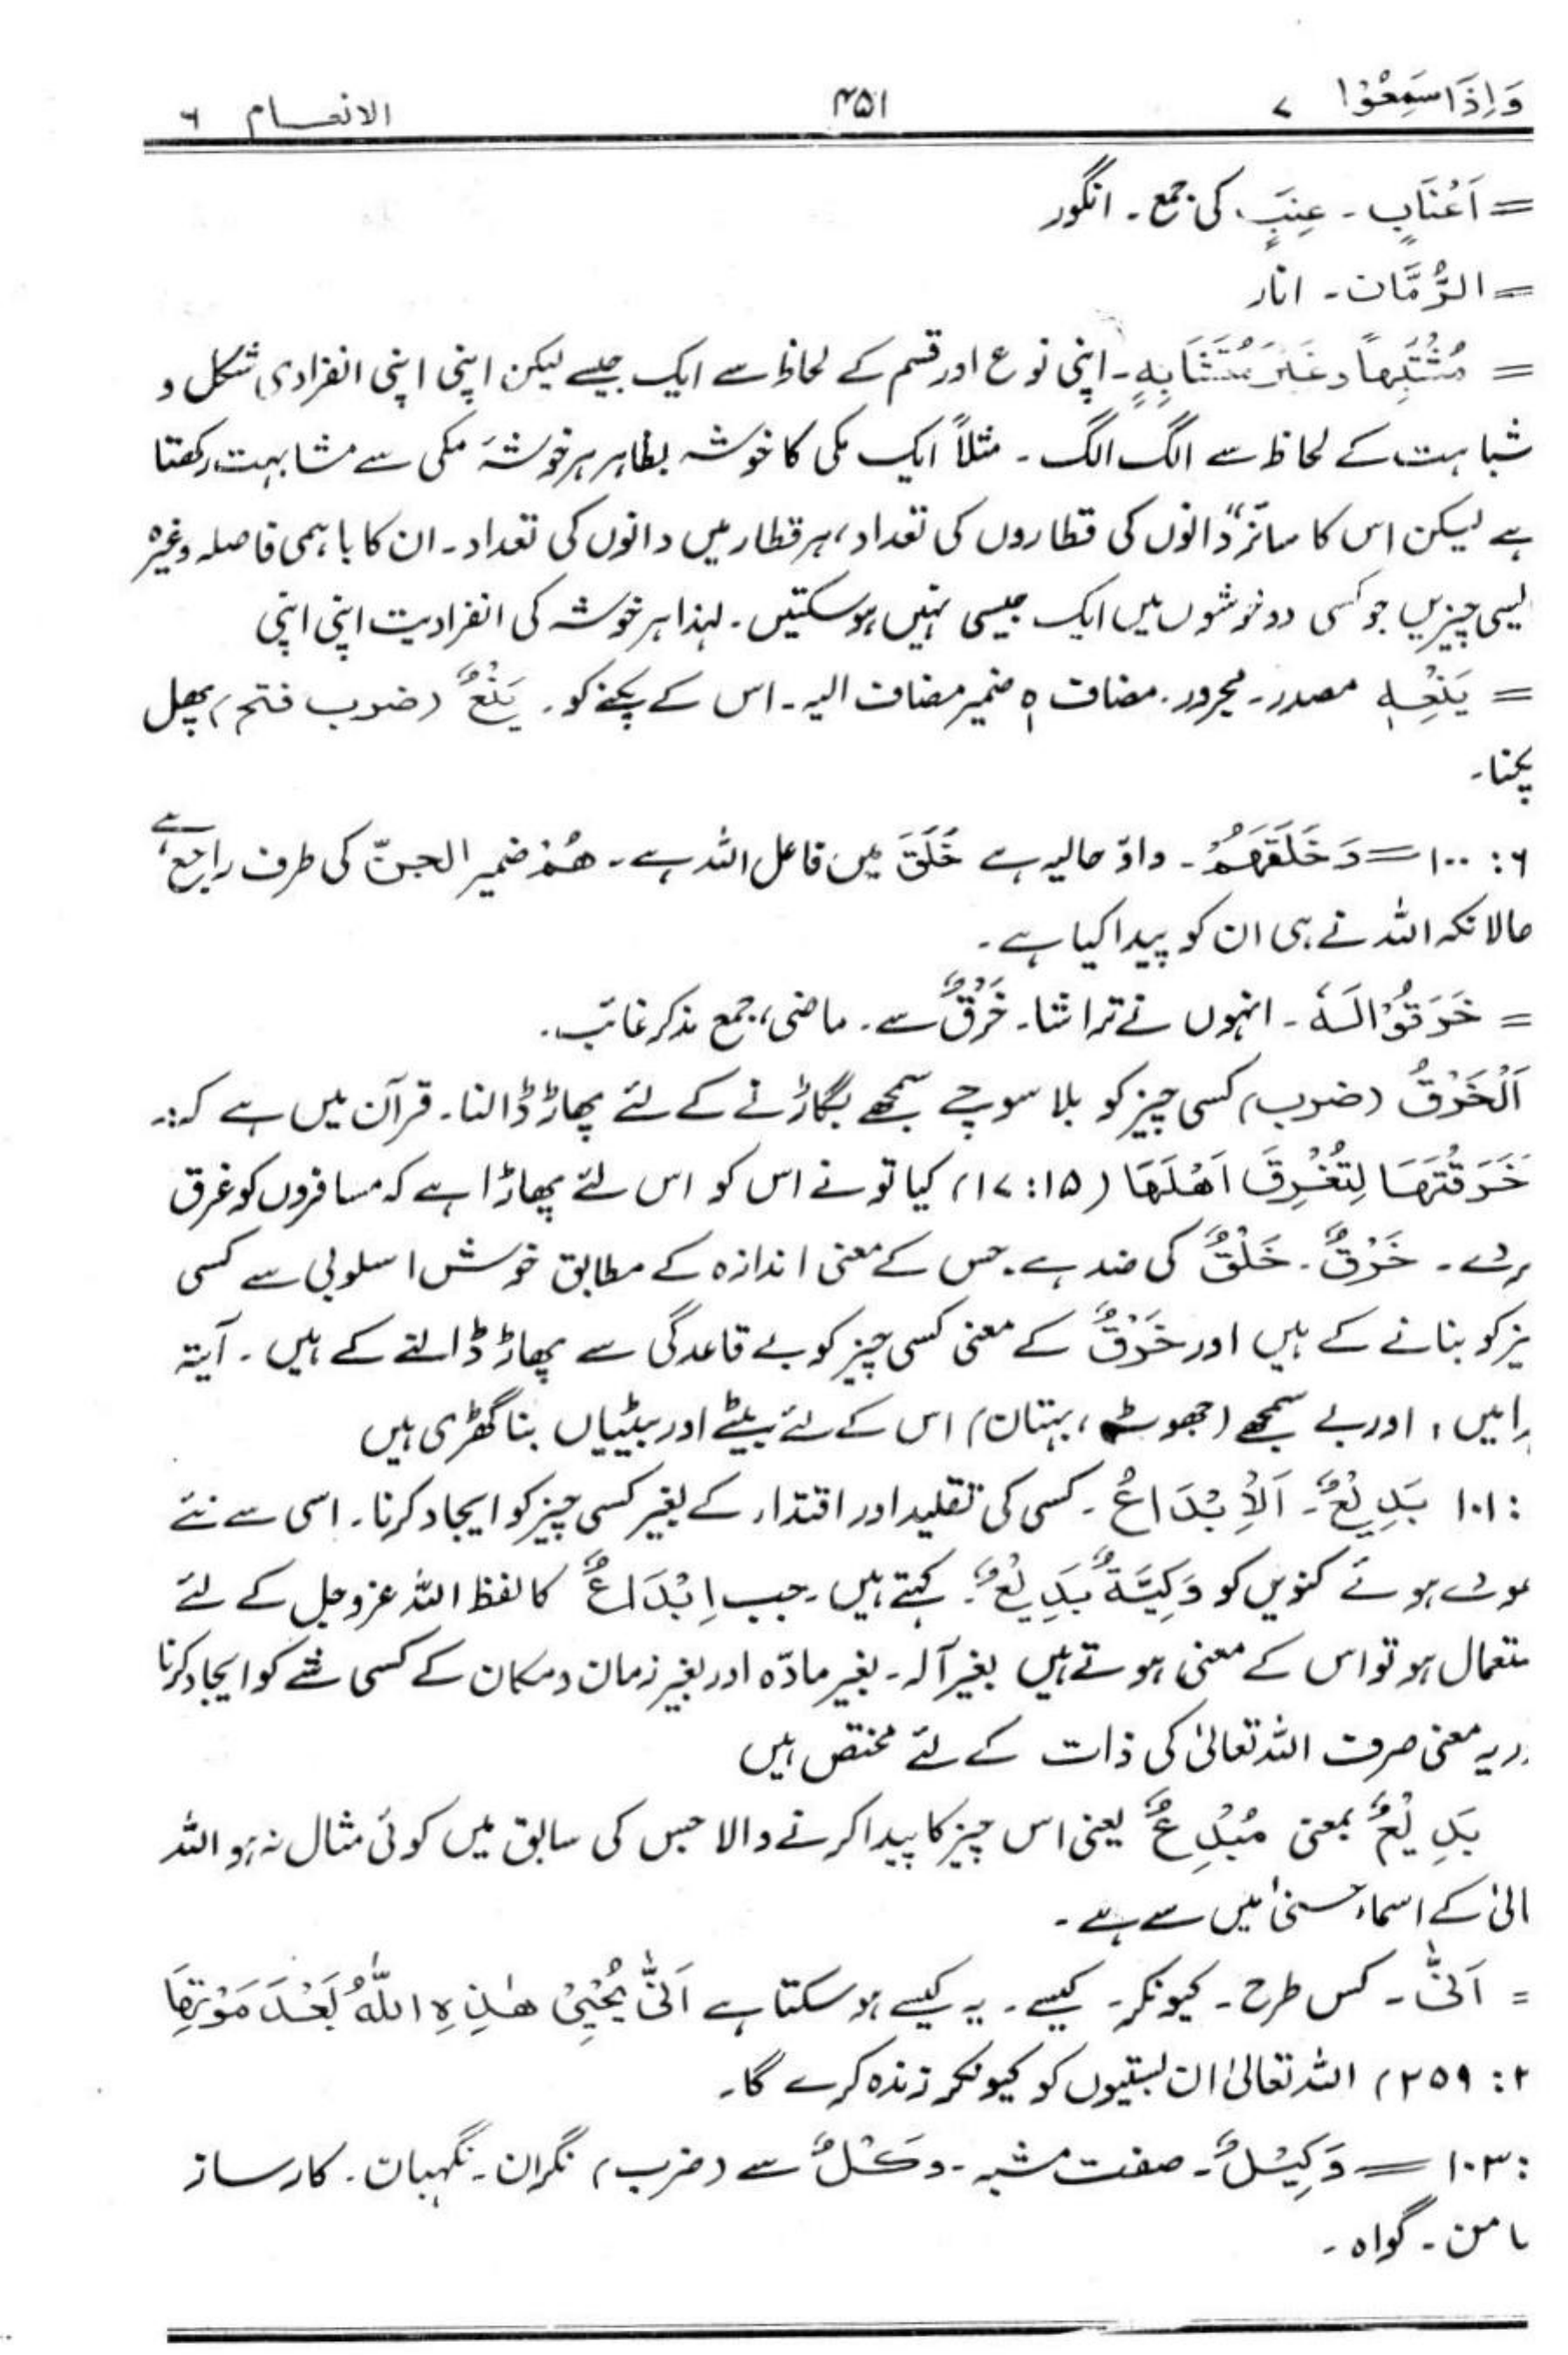 وَاِذَا سَمِعُوْا ۷ ۴۵۱ الانعام ۶
= اَعْنَابٍ ۔ عِنَبٍ کی جمع ۔ انگور
= الرُّمَّان ۔ انار
= مُشْتَبِهاً وغَيْرَ مُتَشَابِهٍ ۔ اپنی نوع اور قسم کے لحاظ سے ایک جیسے لیکن اپنی اپنی انفرادی شکل و
شباہت کے لحاظ سے الگ الگ ۔ مثلاً ایک مکی کا خوشہ بظاہر ہر خوشۂ مکی سے مشابہت رکھتا
ہے لیکن اس کا سائز، دانوں کی قطاروں کی تعداد، ہر قطار میں دانوں کی تعداد ۔ ان کا باہمی فاصلہ وغیرہ
ایسی چیزیں جو کسی دو خوشوں میں ایک جیسی نہیں ہوسکتیں ۔ لہذا ہر خوشہ کی انفرادیت اپنی اپنی
= يَنْعِهٖ مصدر ۔ مجرور ۔ مضاف ہ ضمیر مضاف الیہ ۔ اس کے پکنے کو ۔ يَنْعٌ (ضرب فتح) پھل
پکنا ۔
۶ : ۱۰۰ = وَخَلَقَهُمْ ۔ واؤ حالیہ ہے خَلَقَ میں فاعل اللہ ہے ۔ هُمْ ضمیر الجنّ کی طرف راجع ہے
حالانکہ اللہ نے ہی ان کو پیدا کیا ہے ۔
= خَرَقُوْا لَهٗ ۔ انہوں نے تراشا ۔ خَرْقٌ سے ۔ ماضی، جمع مذکر غائب ۔
اَلْخَرْقُ (ضرب) کسی چیز کو بلا سوچے سمجھے بگاڑنے کے لئے پھاڑ ڈالنا ۔ قرآن میں ہے کہ:۔
خَرَقْتَهَا لِتُغْرِقَ اَهْلَهَا (۱۵:۱۷) کیا تو نے اس کو اس لئے پھاڑا ہے کہ مسافروں کو غرق
رے ۔ خَرْقٌ ۔ خَلْقٌ کی ضد ہے ۔ جس کے معنی اندازہ کے مطابق خوش اسلوبی سے کسی
یز کو بنانے کے ہیں اور خَرْقٌ کے معنی کسی چیز کو بے قاعدگی سے پھاڑ ڈالنے کے ہیں ۔ آیتہ
ا میں ، اور بے سمجھے (جھوٹ ، بہتان) اس کے لئے بیٹے اور بیٹیاں بنا گھڑی ہیں
: ۱۰۱ بَدِيْعٌ ۔ اَلْاِبْدَاعُ ۔ کسی کی تقلید اور اقتداء کے بغیر کسی چیز کو ایجاد کرنا ۔ اسی سے نئے
ہوئے کنویں کو رَكِيَّةٌ بَدِيْعٌ ۔ کہتے ہیں ۔ جب اِبْدَاعٌ کا لفظ اللہ عزوجل کے لئے
ستعمال ہو تو اس کے معنی ہوتے ہیں بغیر آلہ ۔ بغیر مادّہ اور بغیر زمان ومکان کے کسی شئے کو ایجاد کرنا
ور یہ معنی صرف اللہ تعالیٰ کی ذات کے لئے مختص ہیں
بَدِيْعٌ بمعنی مُبْدِعٌ یعنی اس چیز کا پیدا کرنے والا جس کی سابق میں کوئی مثال نہ ہو اللہ
الیٰ کے اسماء حسنیٰ میں سے ہے ۔
= اَنّٰى ۔ کس طرح ۔ کیونکر ۔ کیسے ۔ یہ کیسے ہو سکتا ہے اَنّٰى يُحْيِيْ هٰذِهِ اللّٰهُ بَعْدَ مَوْتِهَا
۲ : ۲۵۹) اللہ تعالیٰ ان بستیوں کو کیونکر زندہ کرے گا ۔
: ۱۰۳ = وَكِيْلٌ ۔ صفت مشبہ ۔ وَكْلٌ سے (ضرب) نگران ۔ نگہبان ۔ کارساز
امن ۔ گواہ ۔